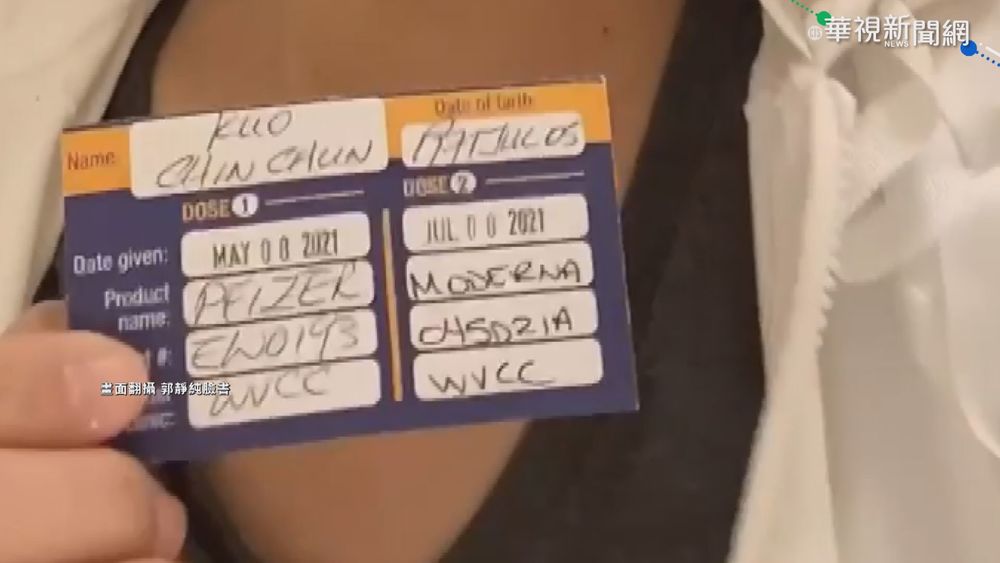 華視新聞網
NEWS
Name
KUO
CHIN CHUN
Date of birth
DOSE 1
DOSE 2
Date given:
MAY 08 2021
JUL 2021
Product
name:
PFIZER
MODERNA
#:
EW0193
045D21A
WVCC
WVCC
畫面翻攝 郭靜純臉書